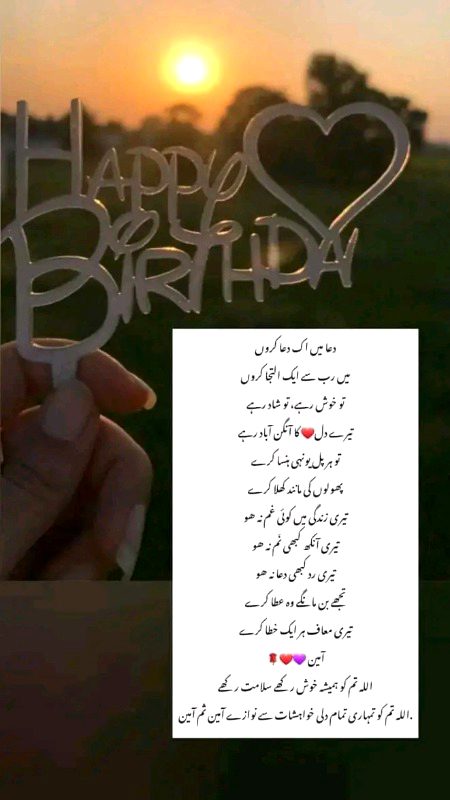 HAPPY
BIRTHDAY
دعا میں اک دعا کروں
میں رب سے ایک التجا کروں
تو خوش رہے، تو شاد رہے
تیرے دل❤️ کا آنگن آباد رہے
تو ہر پل یونہی ہنسا کرے
پھولوں کی مانند کھلا کرے
تیری زندگی میں کوئی غم نہ ھو
تیری آنکھ کبھی نم نہ ھو
تیری رد کبھی دعا نہ ھو
تجھے بن مانگے وہ عطا کرے
تیری معاف ہر ایک خطا کرے
آمین 💜❤️🌹
اللہ تم کو ہمیشہ خوش رکھے سلامت رکھے
.اللہ تم کو تمہاری تمام دلی خواہشات سے نوازے آمین ثم آمین